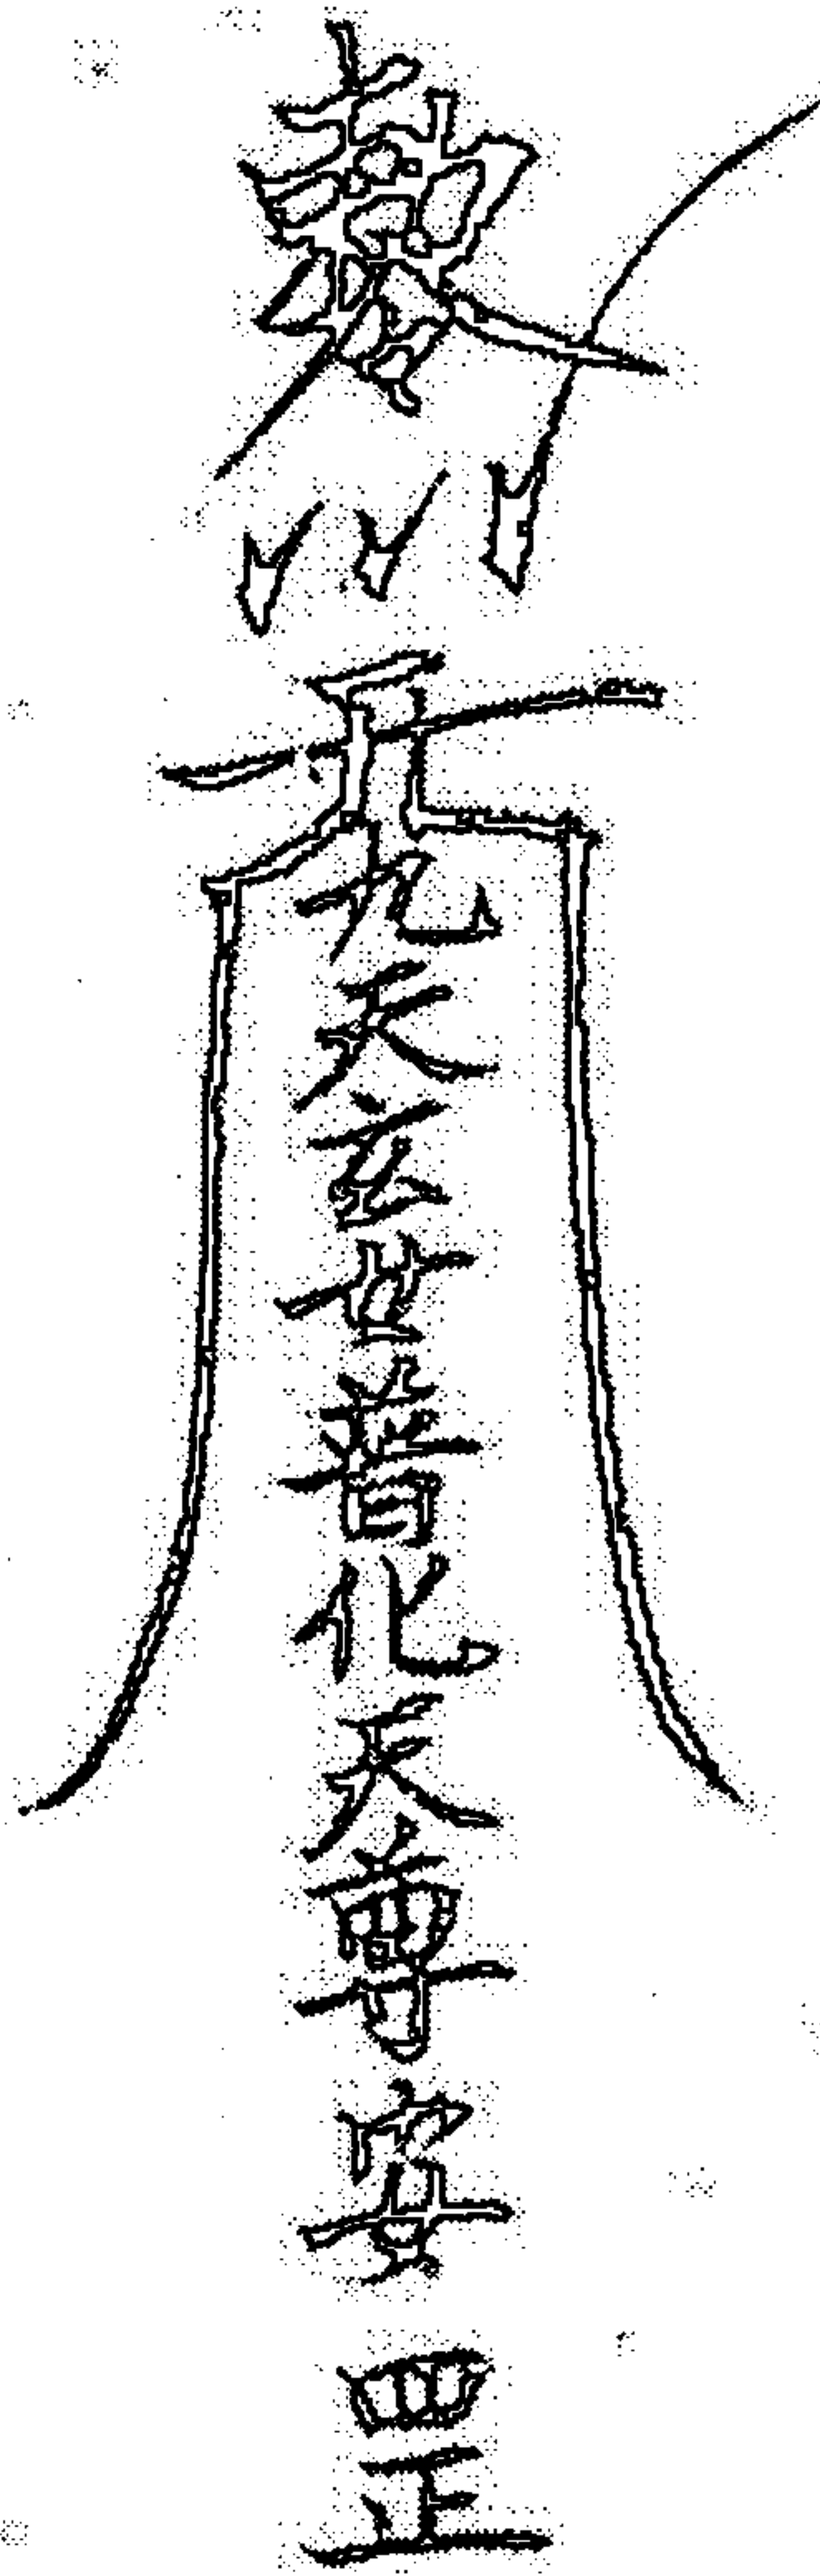 敕
九天玄女普化天尊安罡